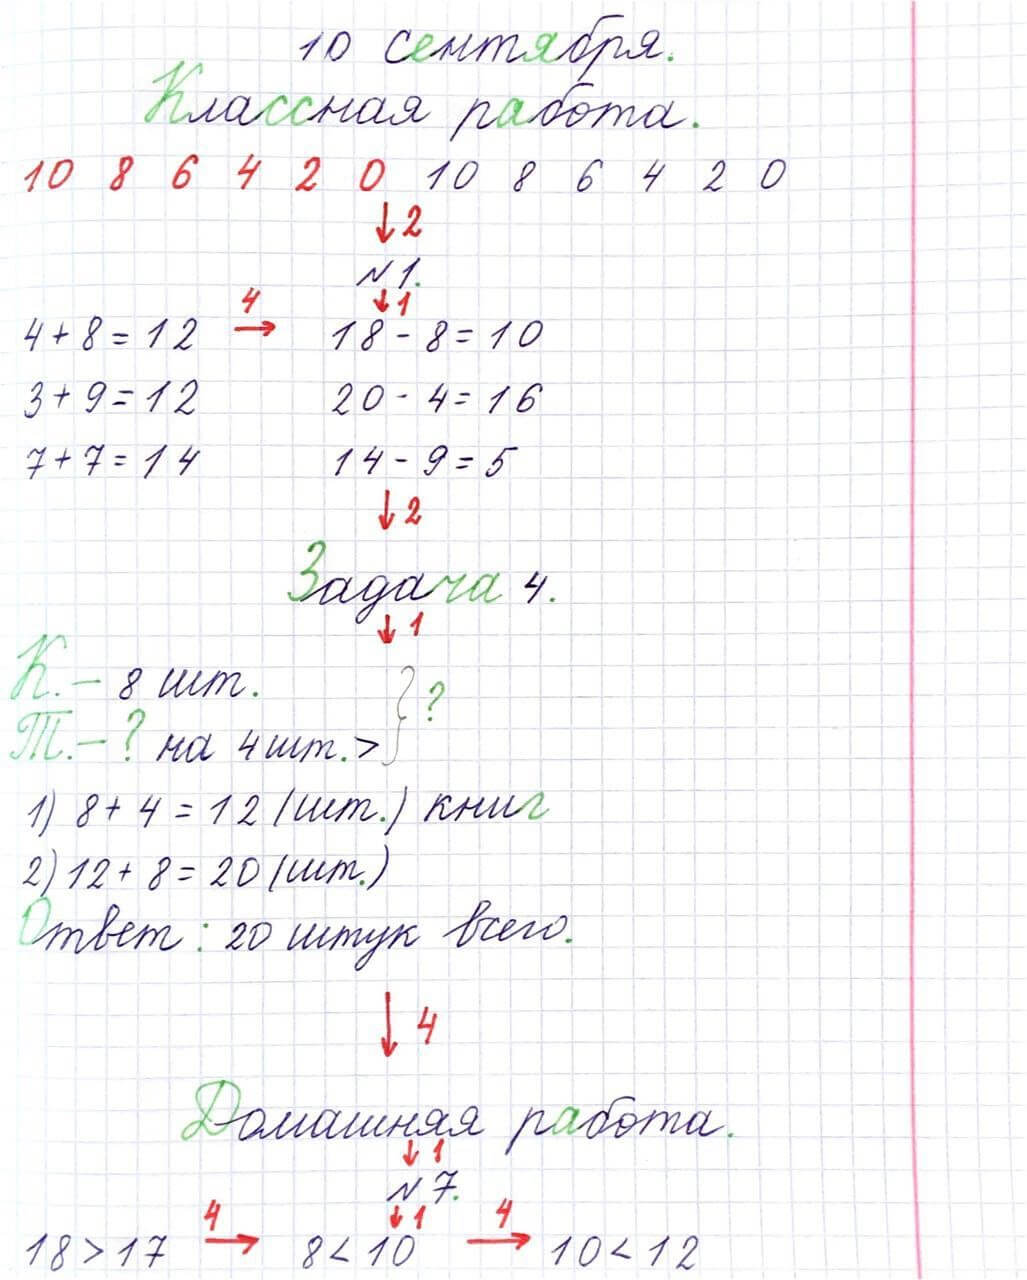 10 сентября.
Классная работа.
10 8 6 4 2 0 10 8 6 4 2 0
↓2
№1.
↓1
4+8=12 4→ 18-8=10
3+9=12 20-4=16
7+7=14 14-9=5
↓2
Задача 4.
↓1
К.– 8 шт. } ?
Т.–? на 4шт.>
1) 8+4=12(шт.) книг
2) 12+8=20(шт.)
Ответ: 20 штук всего.
↓4
Домашняя работа.
↓1
№7.
↓1
18>17 4→ 8<10 4→ 10<12